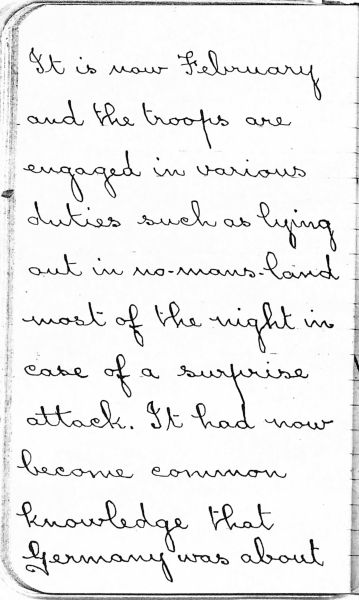 It is now February
and the troops are
engaged in various
duties such as lying
out in no-mans-land
most of the night in
case of a surprise
attack. It had now
become common
knowledge that
Germany was about